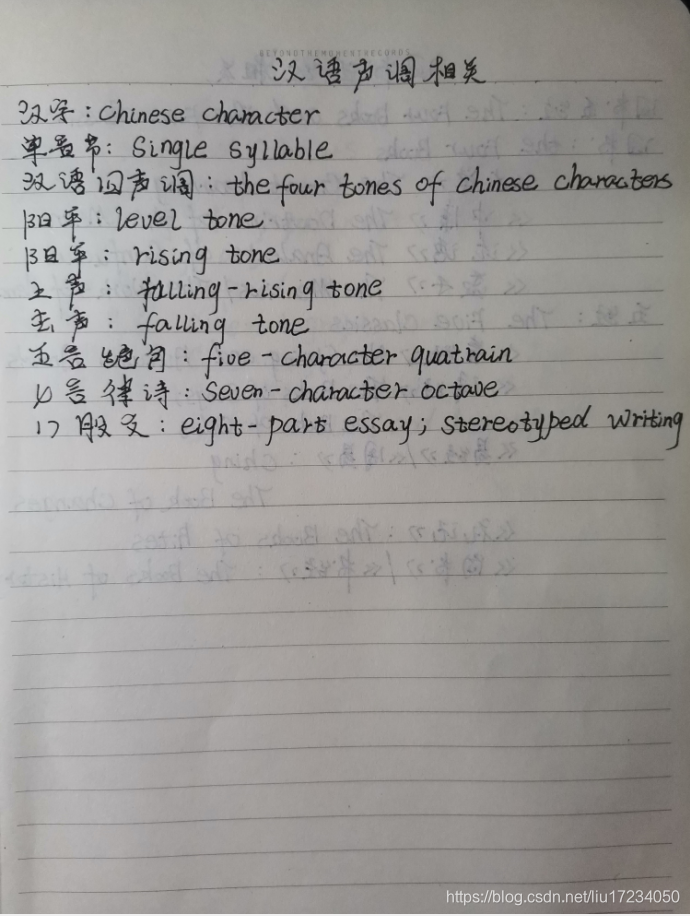 BEYONDTHEMOMENTRECORDS
汉语声调相关
汉字：Chinese character
单音节：Single syllable
汉语四声调：the four tones of Chinese characters
阳平：level tone
阳平：rising tone
上声：falling-rising tone
去声：falling tone
五言绝句：five-character quatrain
七言律诗：Seven-character octave
八股文：eight-part essay; stereotyped writing
https://blog.csdn.net/liu17234050